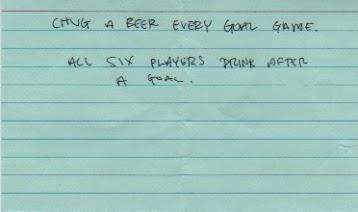 CHUG A BEER EVERY GOAL GAME.
ALL SIX PLAYERS DRINK AFTER
A GOAL.